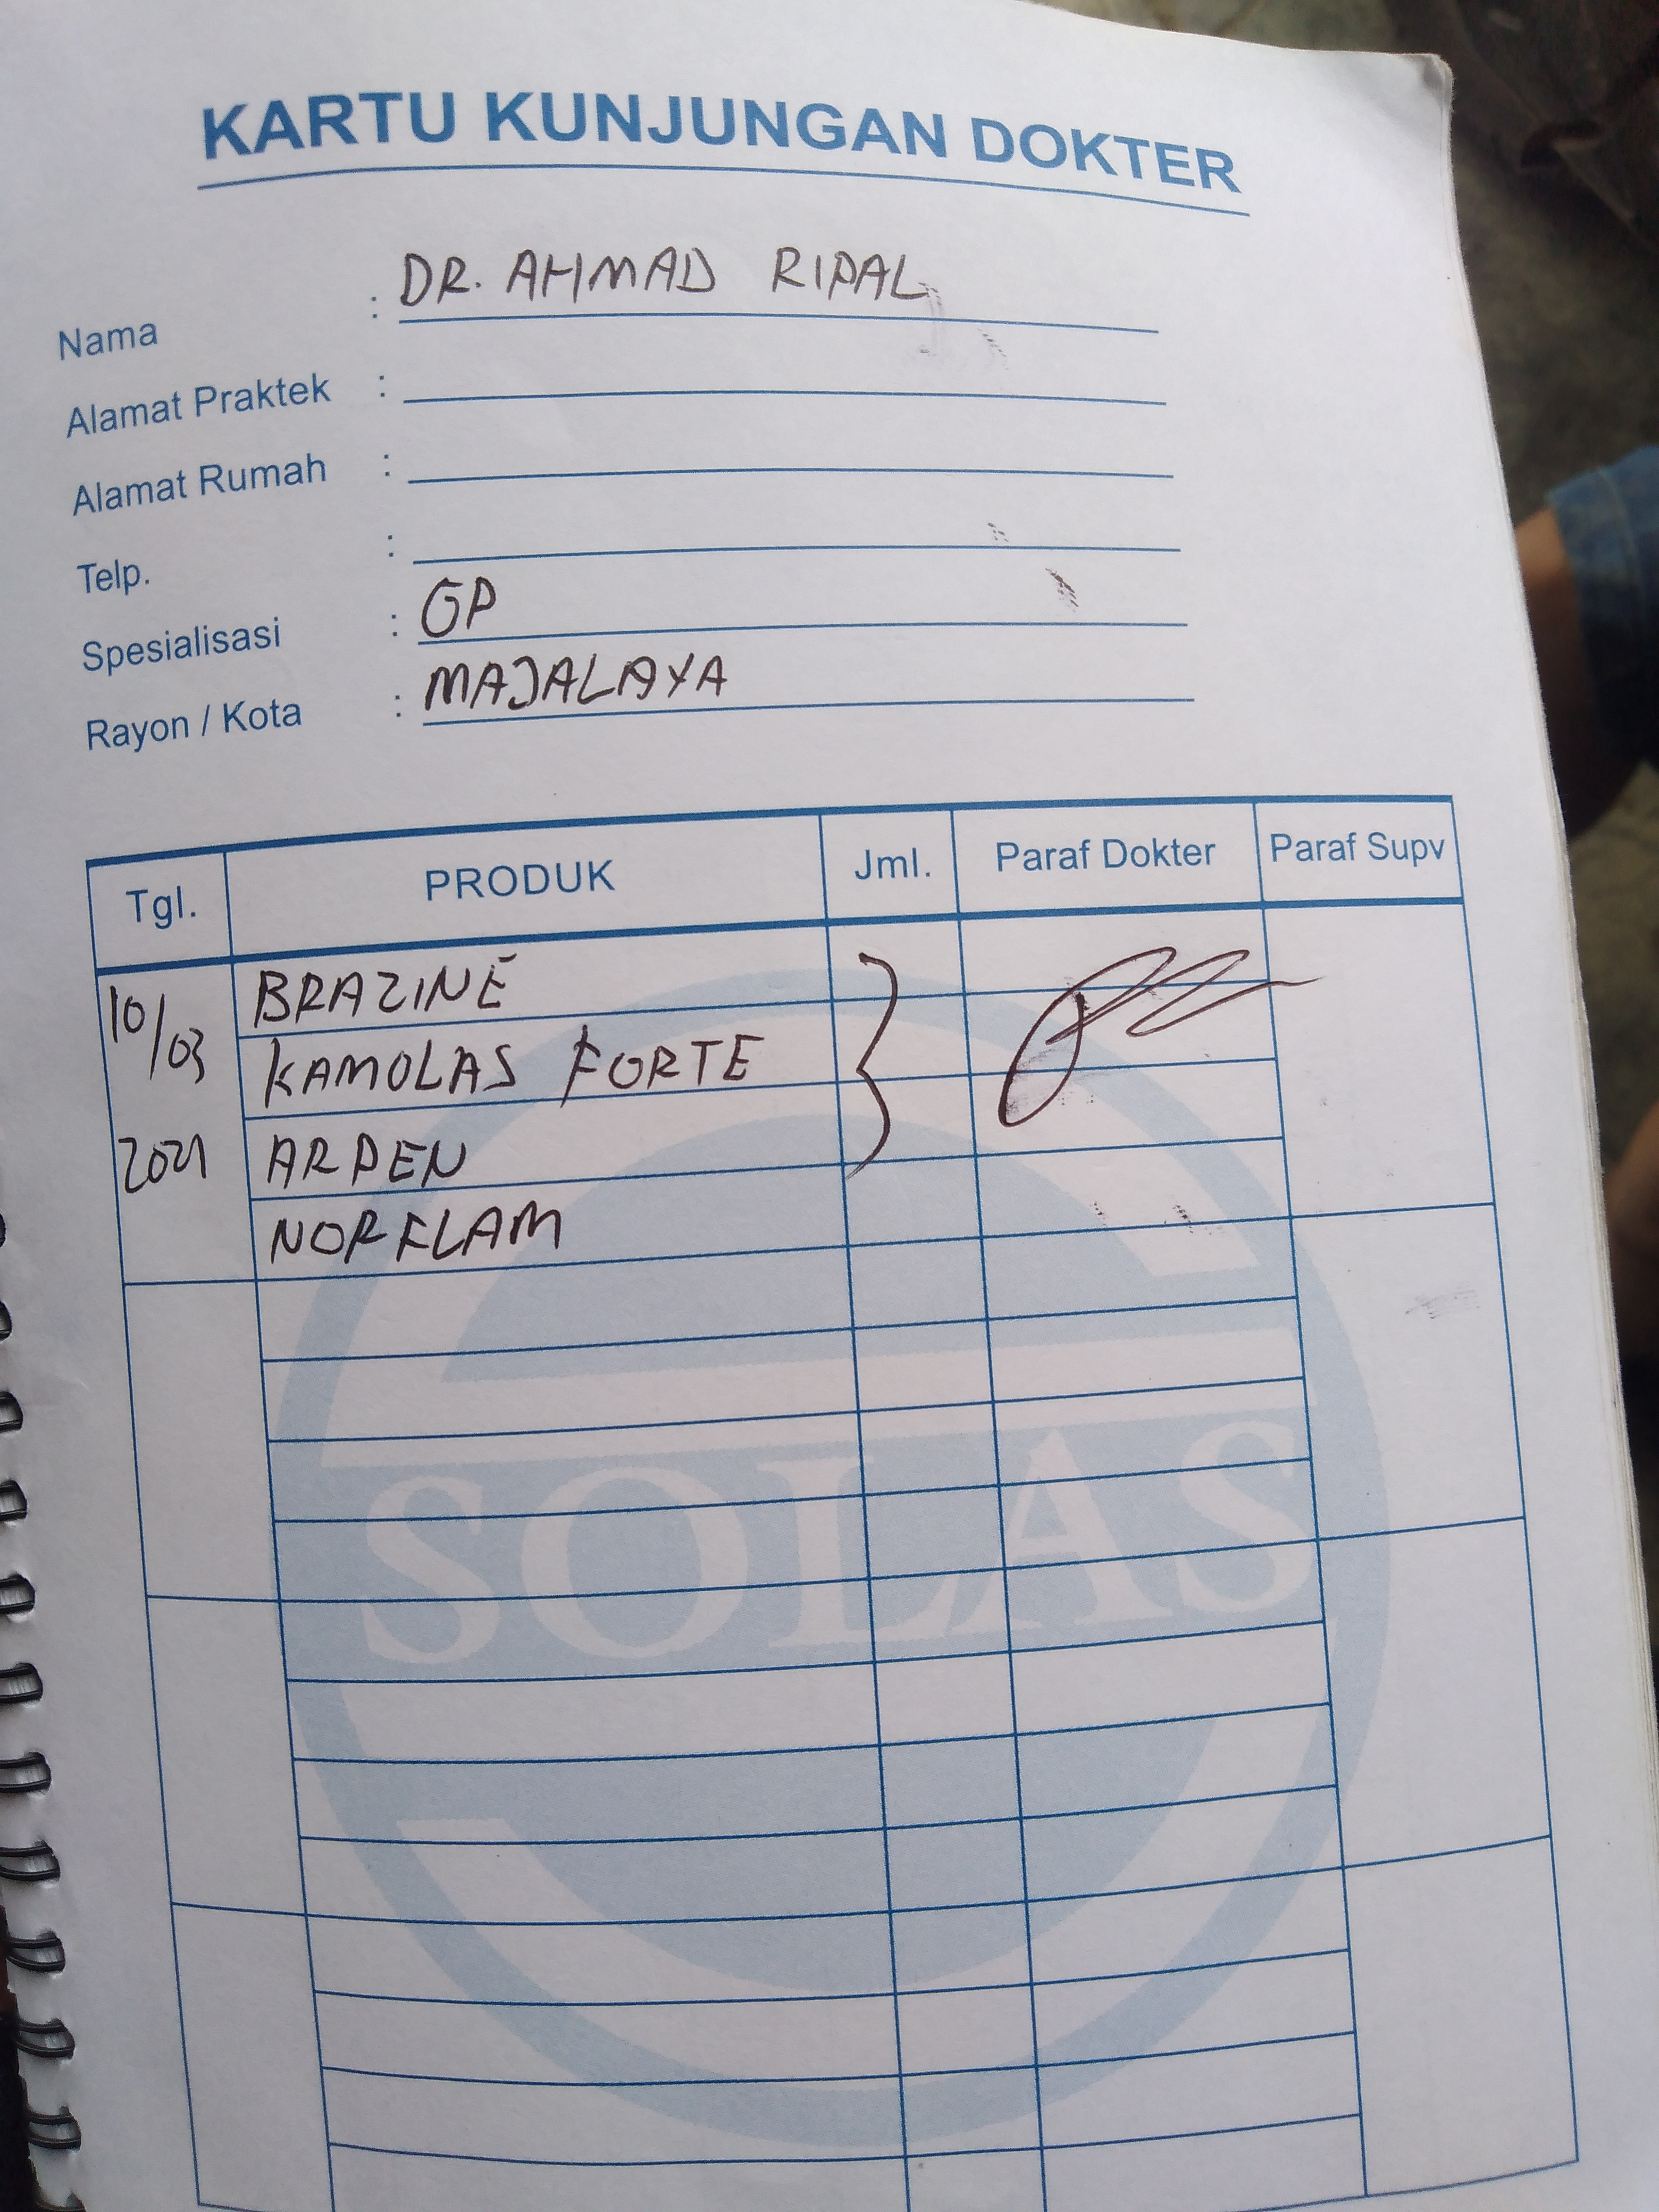 KARTU KUNJUNGAN DOKTER
Nama : DR. AHMAD RIPAL
Alamat Praktek :
Alamat Rumah :
Telp. :
Spesialisasi : GP
Rayon / Kota : MAJALAYA
Tgl. PRODUK Jml. Paraf Dokter Paraf Supv
10/03 BRAZINE
KAMOLAS FORTE
2021 ARPEN
NORFLAM
SOLAS